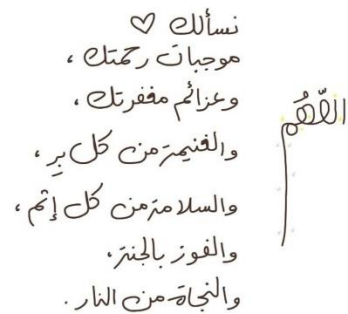 اللّهُم
نسألك ♡
موجبات رحمتك ،
وعزائم مغفرتك ،
والغنيمة من كل بر ،
والسلامة من كل إثم ،
والفوز بالجنة،
والنجاة من النار .